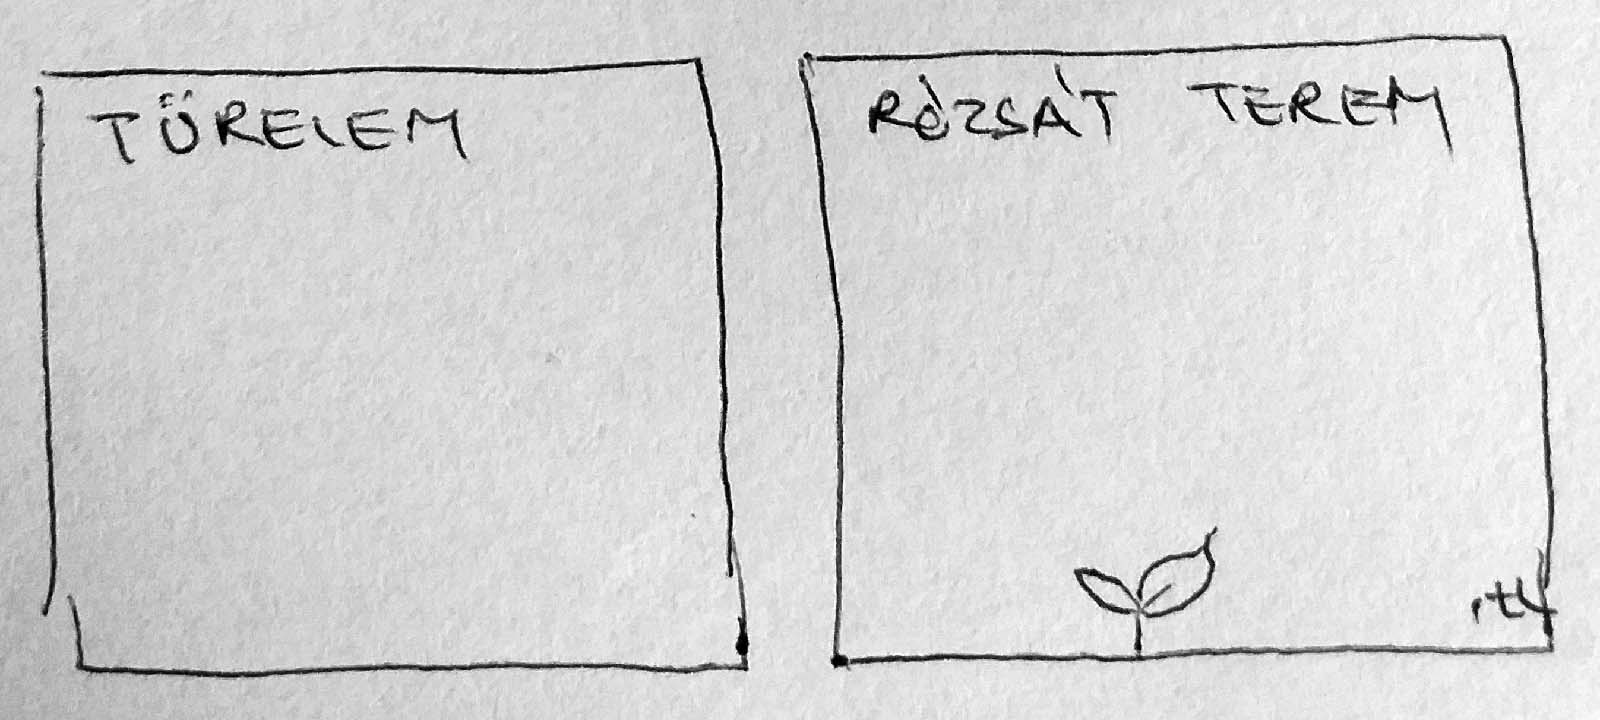 TÜRELEM
RÓZSÁT TEREM